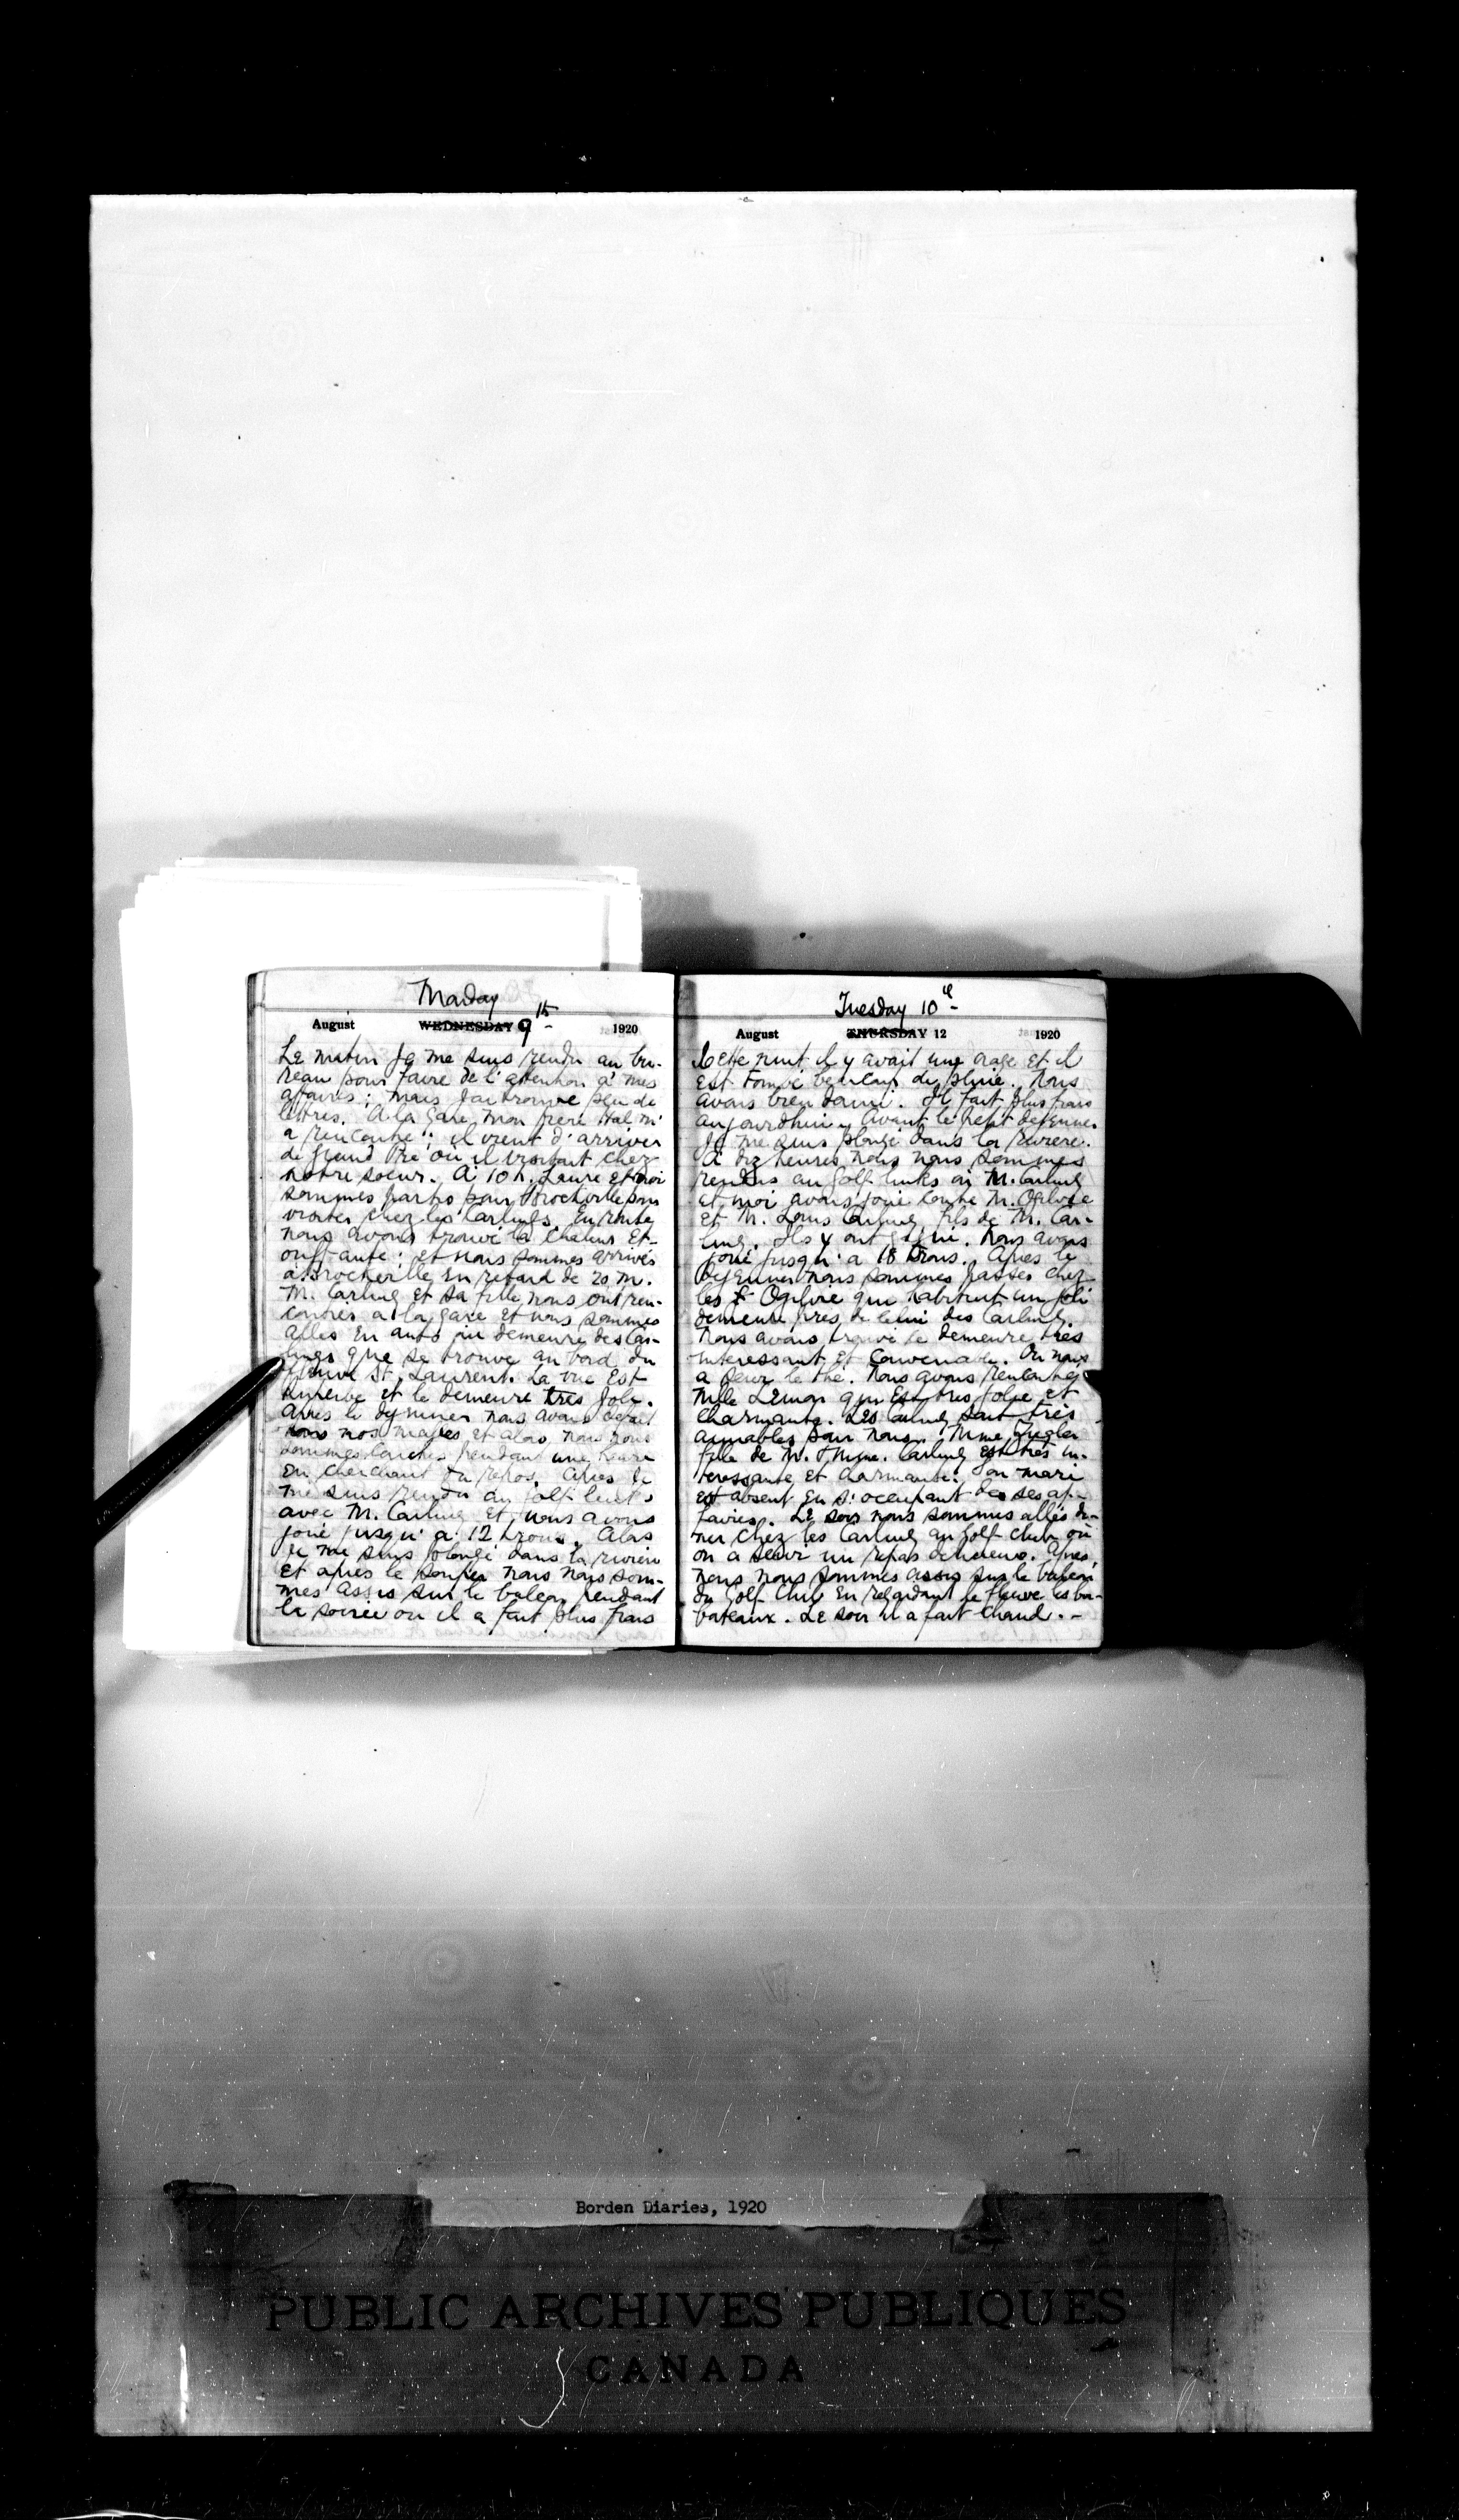 Monday
August WEDNESDAY 9th 1920
Le matin je me suis rendu au bu-
reau pour faire de l'attention à mes
affaires; mais j'ai trouvé peu de
lettres. A la gare mon frere Hal m'
a rencontré; il vient d'arriver
de Grand Pré où il visitait chez
notre soeur. A 10 h. Laure et moi
sommes partis pour Brockville pour
visiter chez les Carlings. En route
nous avons trouvé la chaleur et-
ouffante; et nous sommes arrivés
à Brockville en retard de 20 m.
M. Carling et sa fille nous ont ren-
contrés a la gare et nous sommes
allés en auto au demeure des Car-
lings que se trouve au bord du
fleuve St. Laurent. La vue est
superbe et le demeure très joli.
Apres le dejeuner nous avons défait
nos malles et alors nous nous
sommes couchés pendant une heure
en cherchant du repos. Apres je
me suis rendu au golf links
avec M. Carling et nous avons
joué jusqu'a 12 trous. Alors
je me suis plongé dans la riviere
et apres le souper nous nous som-
mes assis sur le balcon pendant
la soirée ou il a fait plus frais
Tuesday 10th
August THURSDAY 12 1920
Cette nuit il y avait une orage et il
est tombé beaucoup de pluie. Nous
avons bien dormi. Il fait plus frais
aujourdhui. Avant le petit dejeuner
je me suis plongé dans la riviere.
A dix heures nous nous sommes
rendus au golf links où M. Carling
et moi avons joué contre M. Ogilvie
et M. Louis Carling, fils de M. Car-
ling. Ils y ont gagné. Nous avons
joué jusqu'a 18 trous. Apres le
dejeuner nous sommes passés chez
les Ogilvie qui habitent un joli
demeure près de celui des Carling.
Nous avons trouvé le demeure très
interessant et convenable. On nous
a servi le thé. Nous avons rencontré
Mlle Lemon qui est très jolie et
charmante. Les Carling sont très
aimables pour nous. Mme
fille de M. & Mme. Carling est très in-
teressante et charmante. Son mari
est absent en s'occupant des ses af-
faires. Le soir nous sommes allés di-
ner chez les Carling au golf club où
on a servi un repas delicieux. Apres,
nous nous sommes assis sur le balcon
du Golf Club en regardant le fleuve les ba-
bateaux. Le soir il a fait chaud. -
Borden Diaries, 1920
PUBLIC ARCHIVES PUBLIQUES
CANADA